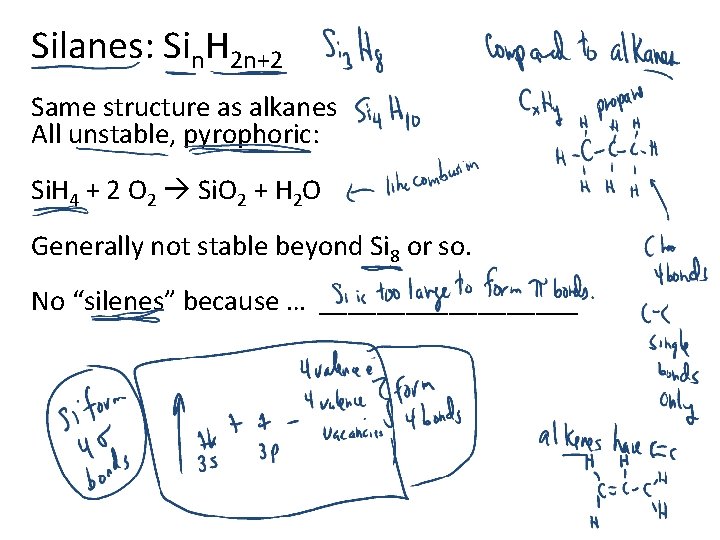 Silanes: SinH2n+2 Si3 H8 Compared to alkanes
Same structure as alkanes Si4 H10 CxHy propane
All unstable, pyrophoric:
H H H
H-C-C-C-H
H H H
SiH4 + 2 O2 → SiO2 + H2O ← like combustion
Generally not stable beyond Si8 or so.
C has
4 bonds
No “silenes” because … Si is too large to form π bonds.
C-C
single
bonds
only
Si form
4 σ
bonds
3s
3p
4 valence e-
4 valence
vacancies
form
4 bonds
alkenes have C=C
H H
C=C-C
H
H
H